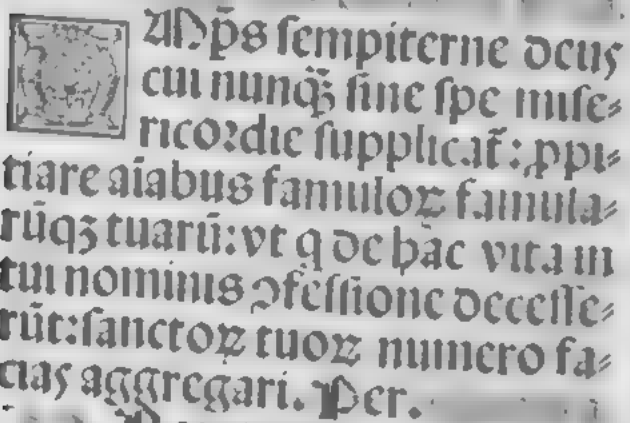 Mp̄s sempiterne deus
cui nunq̄ꝫ sine spe mise⸗
ricoꝛdie supplicat̄: ꝓpi⸗
tiare aīabus famuloꝝ famula⸗
rūqꝫ tuarū: vt q de hāc vita in
tui nominis ↄfessione decesse⸗
rūt: sanctoꝝ tuoꝝ numero fa⸗
cias aggregari. Per.